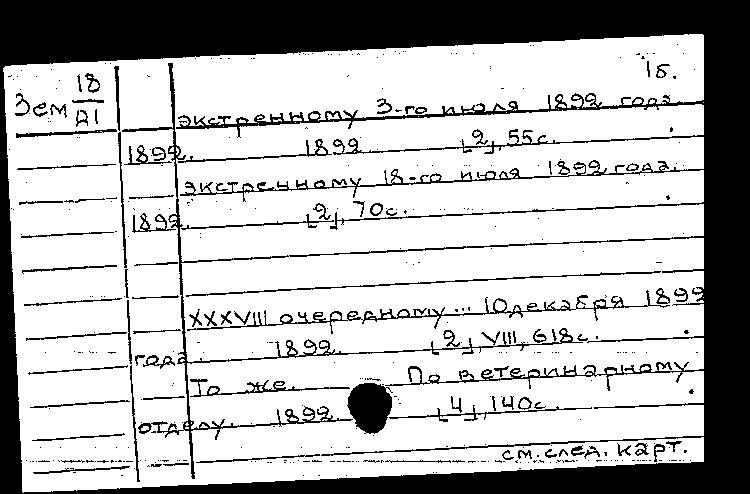 1б.
Зем 18/А1
экстренному 3-го июля 1892 года
1892. 1892 [2], 55с.
экстренному 18-го июля 1892 года.
1892. [2], 70с.
XXXVIII очередному... 10 декабря 1892
года. 1892. [2], VIII, 618с.
То же. По ветеринарному
отделу. 1892 [4], 140с.
см. след. карт.